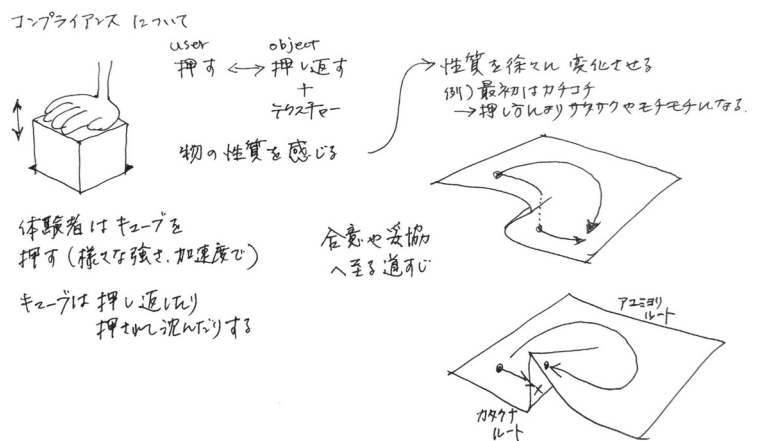 コンプライアンスについて
user object
押す ↔ 押し返す
+
テクスチャー
物の性質を感じる
→ 性質を徐々に変化させる
例) 最初はカチコチ
→ 押し方によりサクサクやモチモチになる.
体験者はキューブを
押す (様々な強さ、加速度で)
キューブは押し返したり
押されて沈んだりする
合意や妥協
へ至る道すじ
アユミヨリ
ルート
カタクナ
ルート
×